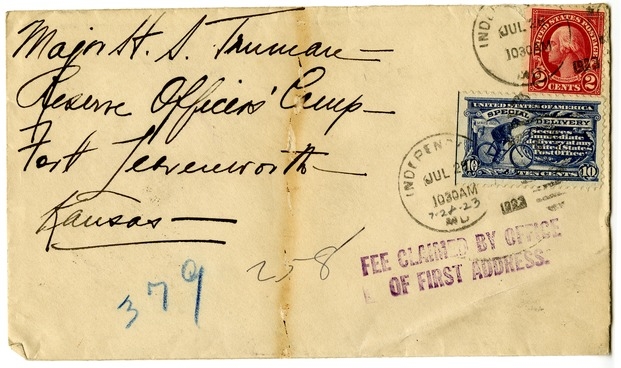 Major H. S. Truman—
Reserve Officers' Camp—
Fort Leavenworth—
Kansas—
379
258
UNITED STATES POSTAGE
2 CENTS 2
UNITED STATES OF AMERICA
SPECIAL DELIVERY
Secures
immediate
delivery at any
United States
Post Office
10 TEN CENTS 10
JUL
1030AM
1923
INDEPEN
JUL 2
1030AM
7-24-23
MO
1923
FEE CLAIMED BY OFFICE
OF FIRST ADDRESS.